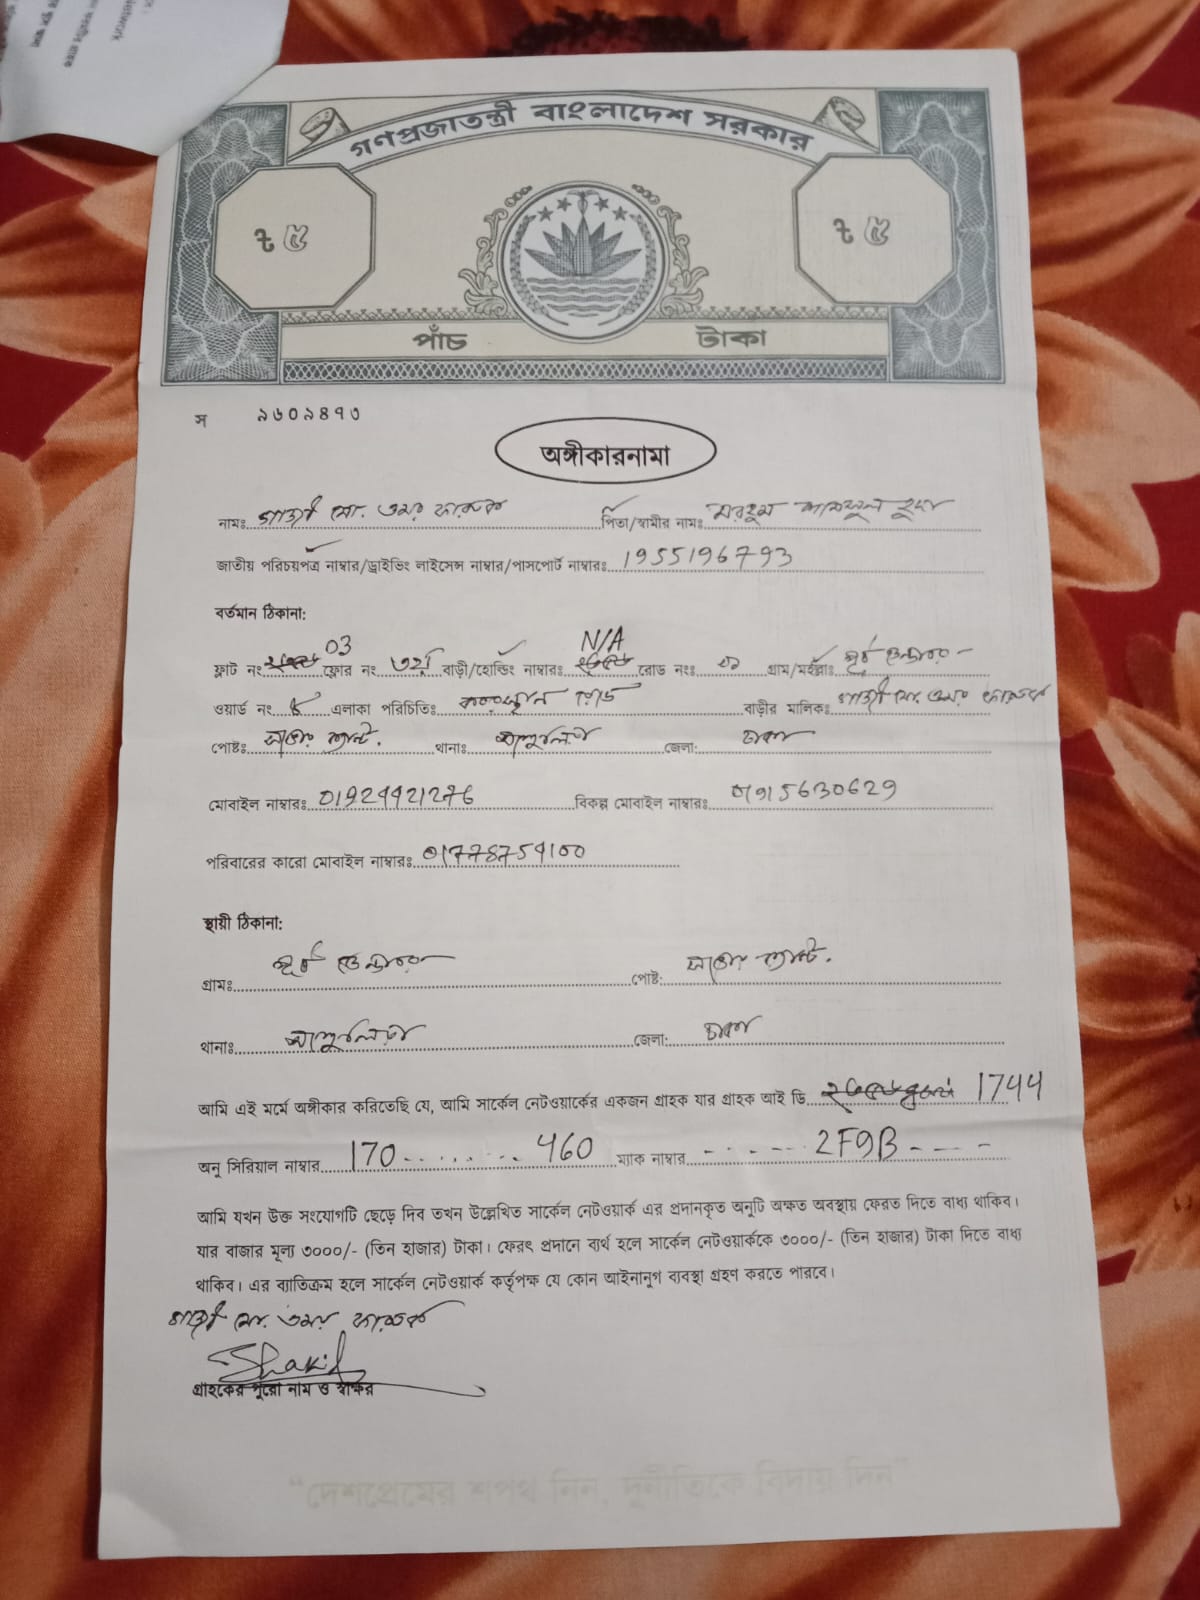 গণপ্রজাতন্ত্রী বাংলাদেশ সরকার
৳ ৫ ৳ ৫
পাঁচ টাকা
স ৯৬০৯৪৭৩
অঙ্গীকারনামা
নামঃ গাজী মো. ওমর ফারুক পিতা/স্বামীর নাম: মরহুম শামসুল হুদা
জাতীয় পরিচয়পত্র নাম্বার/ড্রাইভিং লাইসেন্স নাম্বার/পাসপোর্ট নাম্বারঃ 1955196793
বর্তমান ঠিকানা:
ফ্লাট নং 03 ফ্লোর নং ৩য় বাড়ী/হোল্ডিং নাম্বারঃ N/A রোড নংঃ গ্রাম/মহল্লাঃ পূর্ব
ওয়ার্ড নং এলাকা পরিচিতিঃ কবরস্থান রোড বাড়ীর মালিকঃ গাজী মো. ওমর ফারুক
পোষ্টঃ সাভার ক্যান্ট. থানাঃ আশুলিয়া জেলা: ঢাকা
মোবাইল নাম্বারঃ 01924421276 বিকল্প মোবাইল নাম্বারঃ 01915630629
পরিবারের কারো মোবাইল নাম্বারঃ 01778759100
স্থায়ী ঠিকানা:
গ্রামঃ পূর্ব পোষ্ট: সাভার ক্যান্ট.
থানাঃ আশুলিয়া জেলা: ঢাকা
আমি এই মর্মে অঙ্গীকার করিতেছি যে, আমি সার্কেল নেটওয়ার্কের একজন গ্রাহক যার গ্রাহক আই ডি 1744
অনু সিরিয়াল নাম্বার 170 460 ম্যাক নাম্বার 2F9B
আমি যখন উক্ত সংযোগটি ছেড়ে দিব তখন উল্লেখিত সার্কেল নেটওয়ার্ক এর প্রদানকৃত অনুটি অক্ষত অবস্থায় ফেরত দিতে বাধ্য থাকিব।
যার বাজার মূল্য ৩০০০/- (তিন হাজার) টাকা। ফেরৎ প্রদানে ব্যর্থ হলে সার্কেল নেটওয়ার্ককে ৩০০০/- (তিন হাজার) টাকা দিতে বাধ্য
থাকিব। এর ব্যাতিক্রম হলে সার্কেল নেটওয়ার্ক কর্তৃপক্ষ যে কোন আইনানুগ ব্যবস্থা গ্রহণ করতে পারবে।
গাজী মো. ওমর ফারুক
Shakil
গ্রাহকের পুরো নাম ও স্বাক্ষর
“দেশপ্রেমের শপথ নিন, দুর্নীতিকে বিদায় দিন”